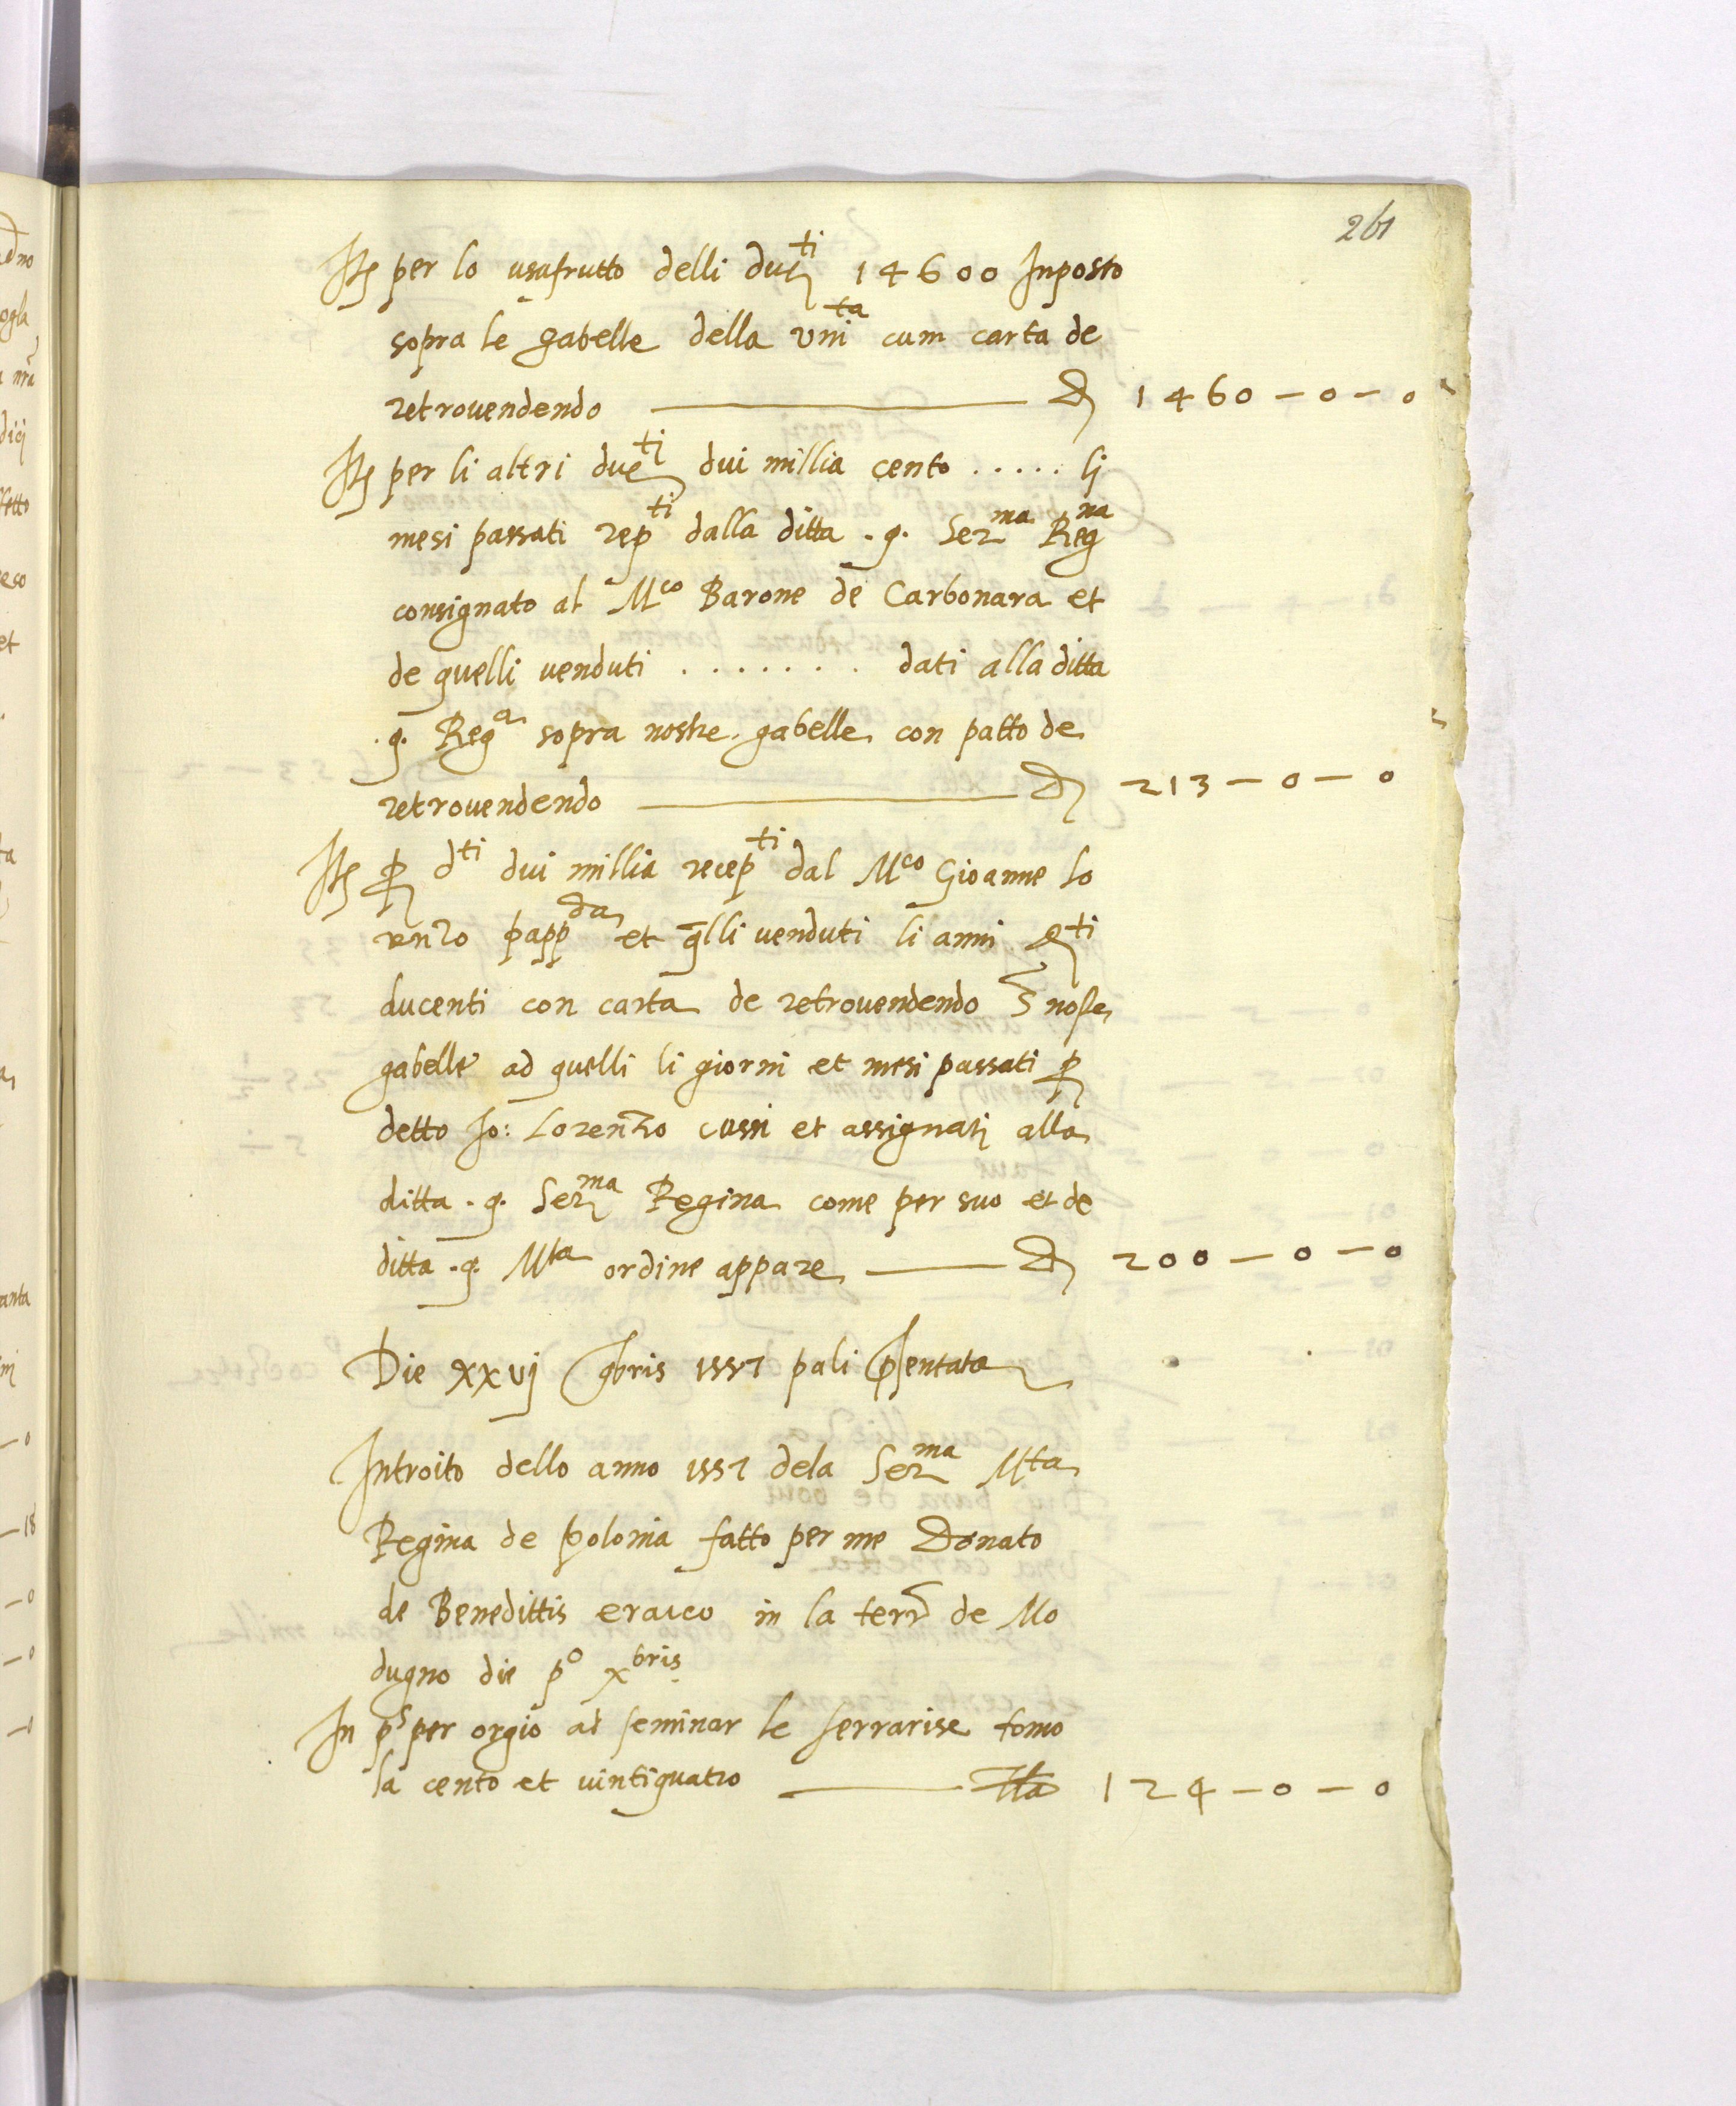 261
Itē per lo usufrutto delli ducti 14600 Inposto
sopra le gabelle della Unita cum carta de
retrovendendo ——— D 1460 — 0 — 0
Itē per li altri ducti dui millia cento ..... li
mesi passati repti dalla ditta .q. Serma Regna
consignato al Mco Barone de Carbonara et
de quelli venduti ........ dati alla ditta
.q. Rega sopra nostre gabelle con patto de
retrovendendo ——— D 213 — 0 — 0
Itē p dti dui millia recepti dal Mco Gioanne Lo
renzo pappda et qlli venduti li anni
ducenti con carta de retrovendendo S nostre
gabelle ad quelli li giorni et mesi passati p
detto Jo: Lorenzo cussi et assignati alla
ditta .q. Serma Regina come per suo et de
ditta .q. Mta ordine appare ——— D 200 — 0 — 0
Die xxvj 9bris 1557 pali psentata
Introito dello anno 1557 dela Serma Mta
Regina de Polonia fatto per me Donato
de Benedittis in la terr de Mo
dugno die po xbris
In ps per orgio ad seminar le ferrarise tomo
la cento et vintiquatro ——— tta 124 — 0 — 0